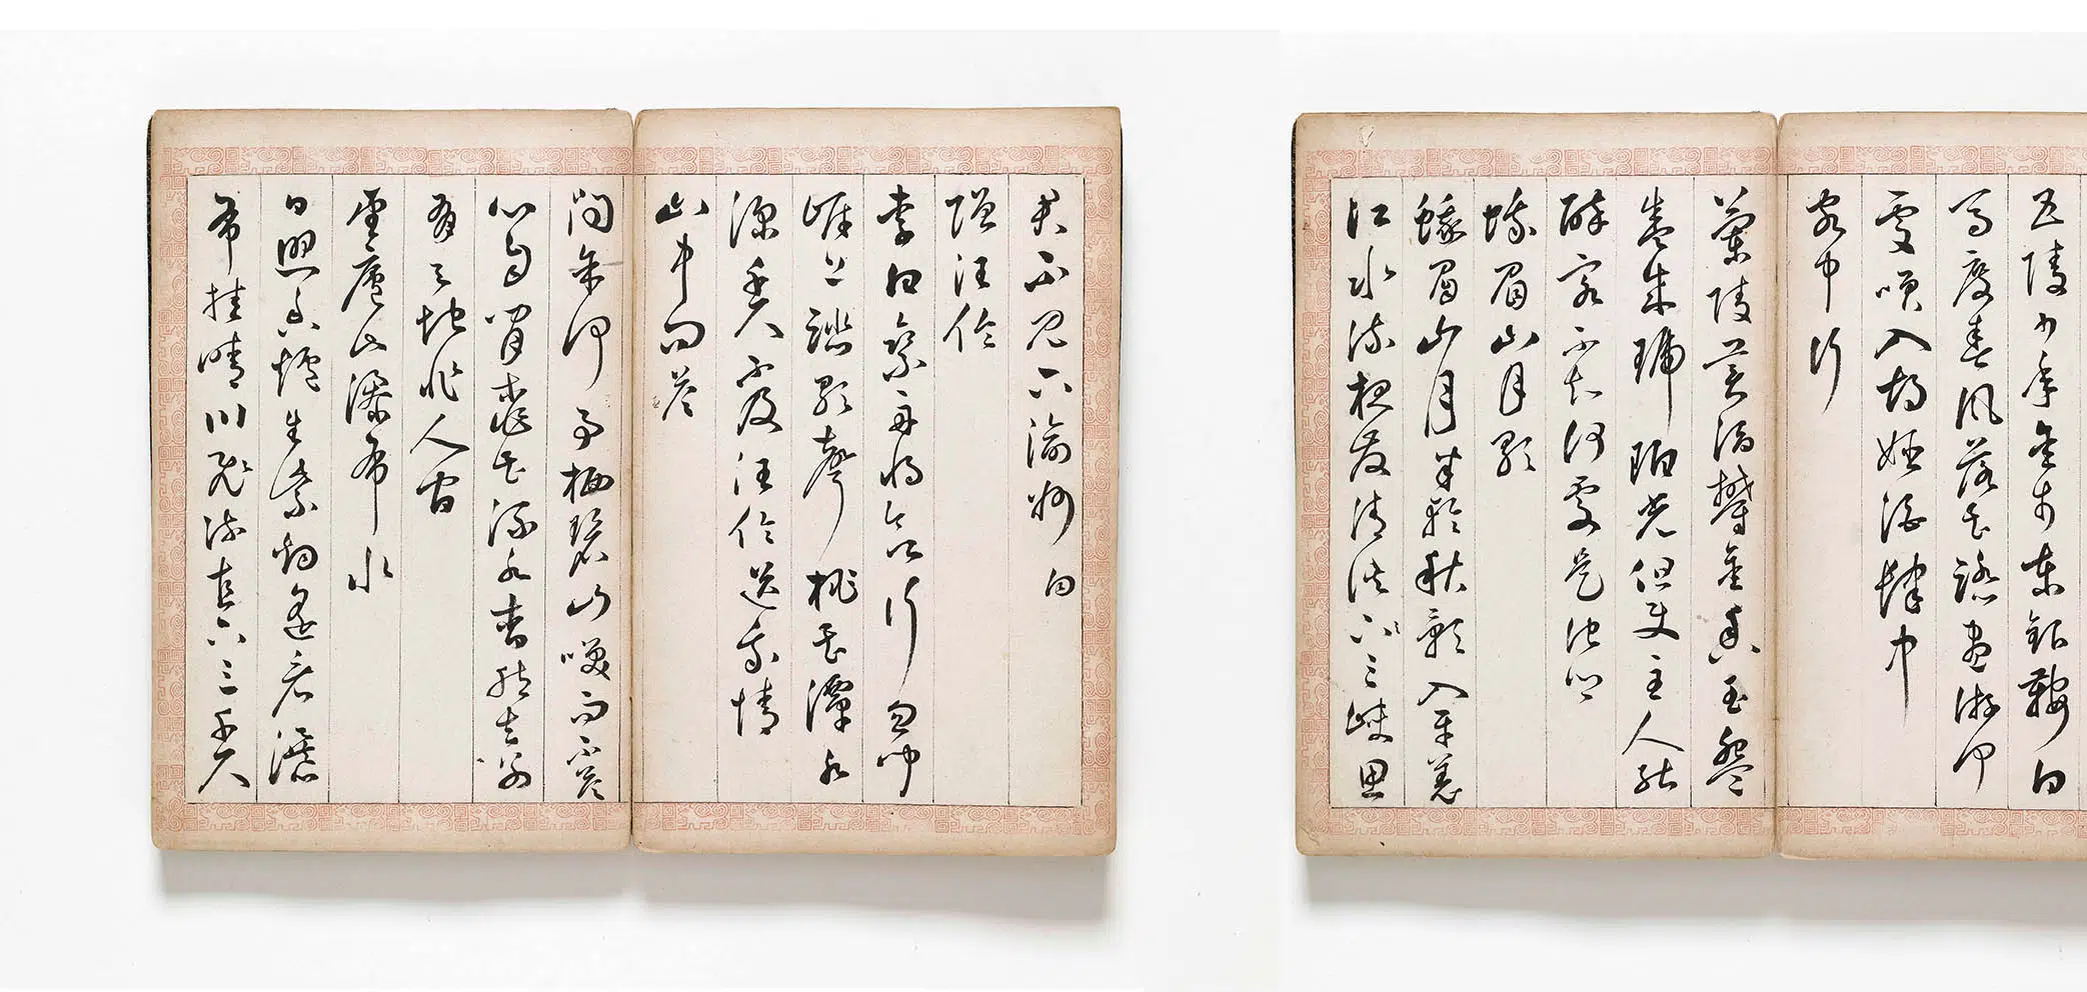 五陵少年金市東銀鞍白
馬度春風落花踏盡遊何
處笑入胡姬酒肆中
客中行
蘭陵美酒鬱金香玉盌
盛來琥珀光但使主人能
醉客不知何處是他鄉
蛾眉山月歌
蛾眉山月半輪秋影入平羌
江水流夜發清溪下三峽思
君不見下渝州 向
贈汪倫
李白乘舟將欲行忽聞
岸上踏歌聲桃花潭水
深千尺不及汪倫送我情
山中問答
問余何事栖碧山笑而不答
心自閒桃花流水杳然去別
有天地非人間
望廬山瀑布水
日照香爐生紫烟遙看瀑
布挂晴川飛流直下三千尺